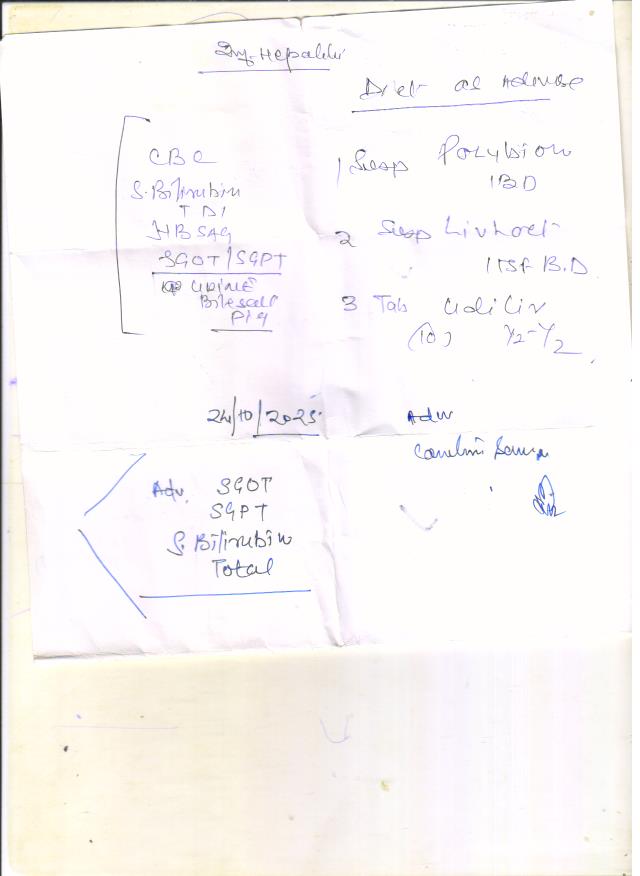 Inf. Hepatitis
Diet as Advise
CBC
S. Bilirubin
T D I
HBSAG
SGOT/SGPT
URINE
Bilesalt
Pig
1 Susp Polybion
1 BD
2 Susp Livhort
1 tsf B.D
3 Tab Udiliv
(10) 1/2-1/2
24/10/2025
Adv. SGOT
SGPT
S. Bilirubin
Total
Adv